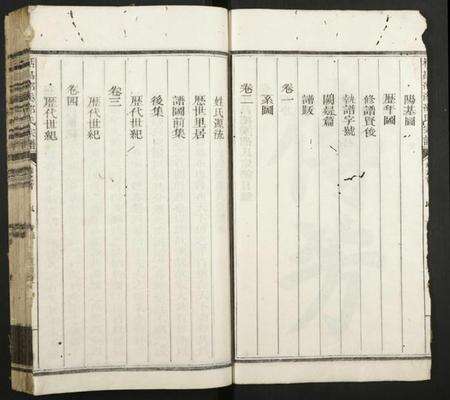 陽基圖
歷年圖
修譜賢俊
執譜字號
闢疑篇
譜跋
卷一
系圖
卷二
姓氏源流
歷世里居
譜圖前集
後集
歷代世紀
卷三
歷代世紀
卷四
歷代世紀